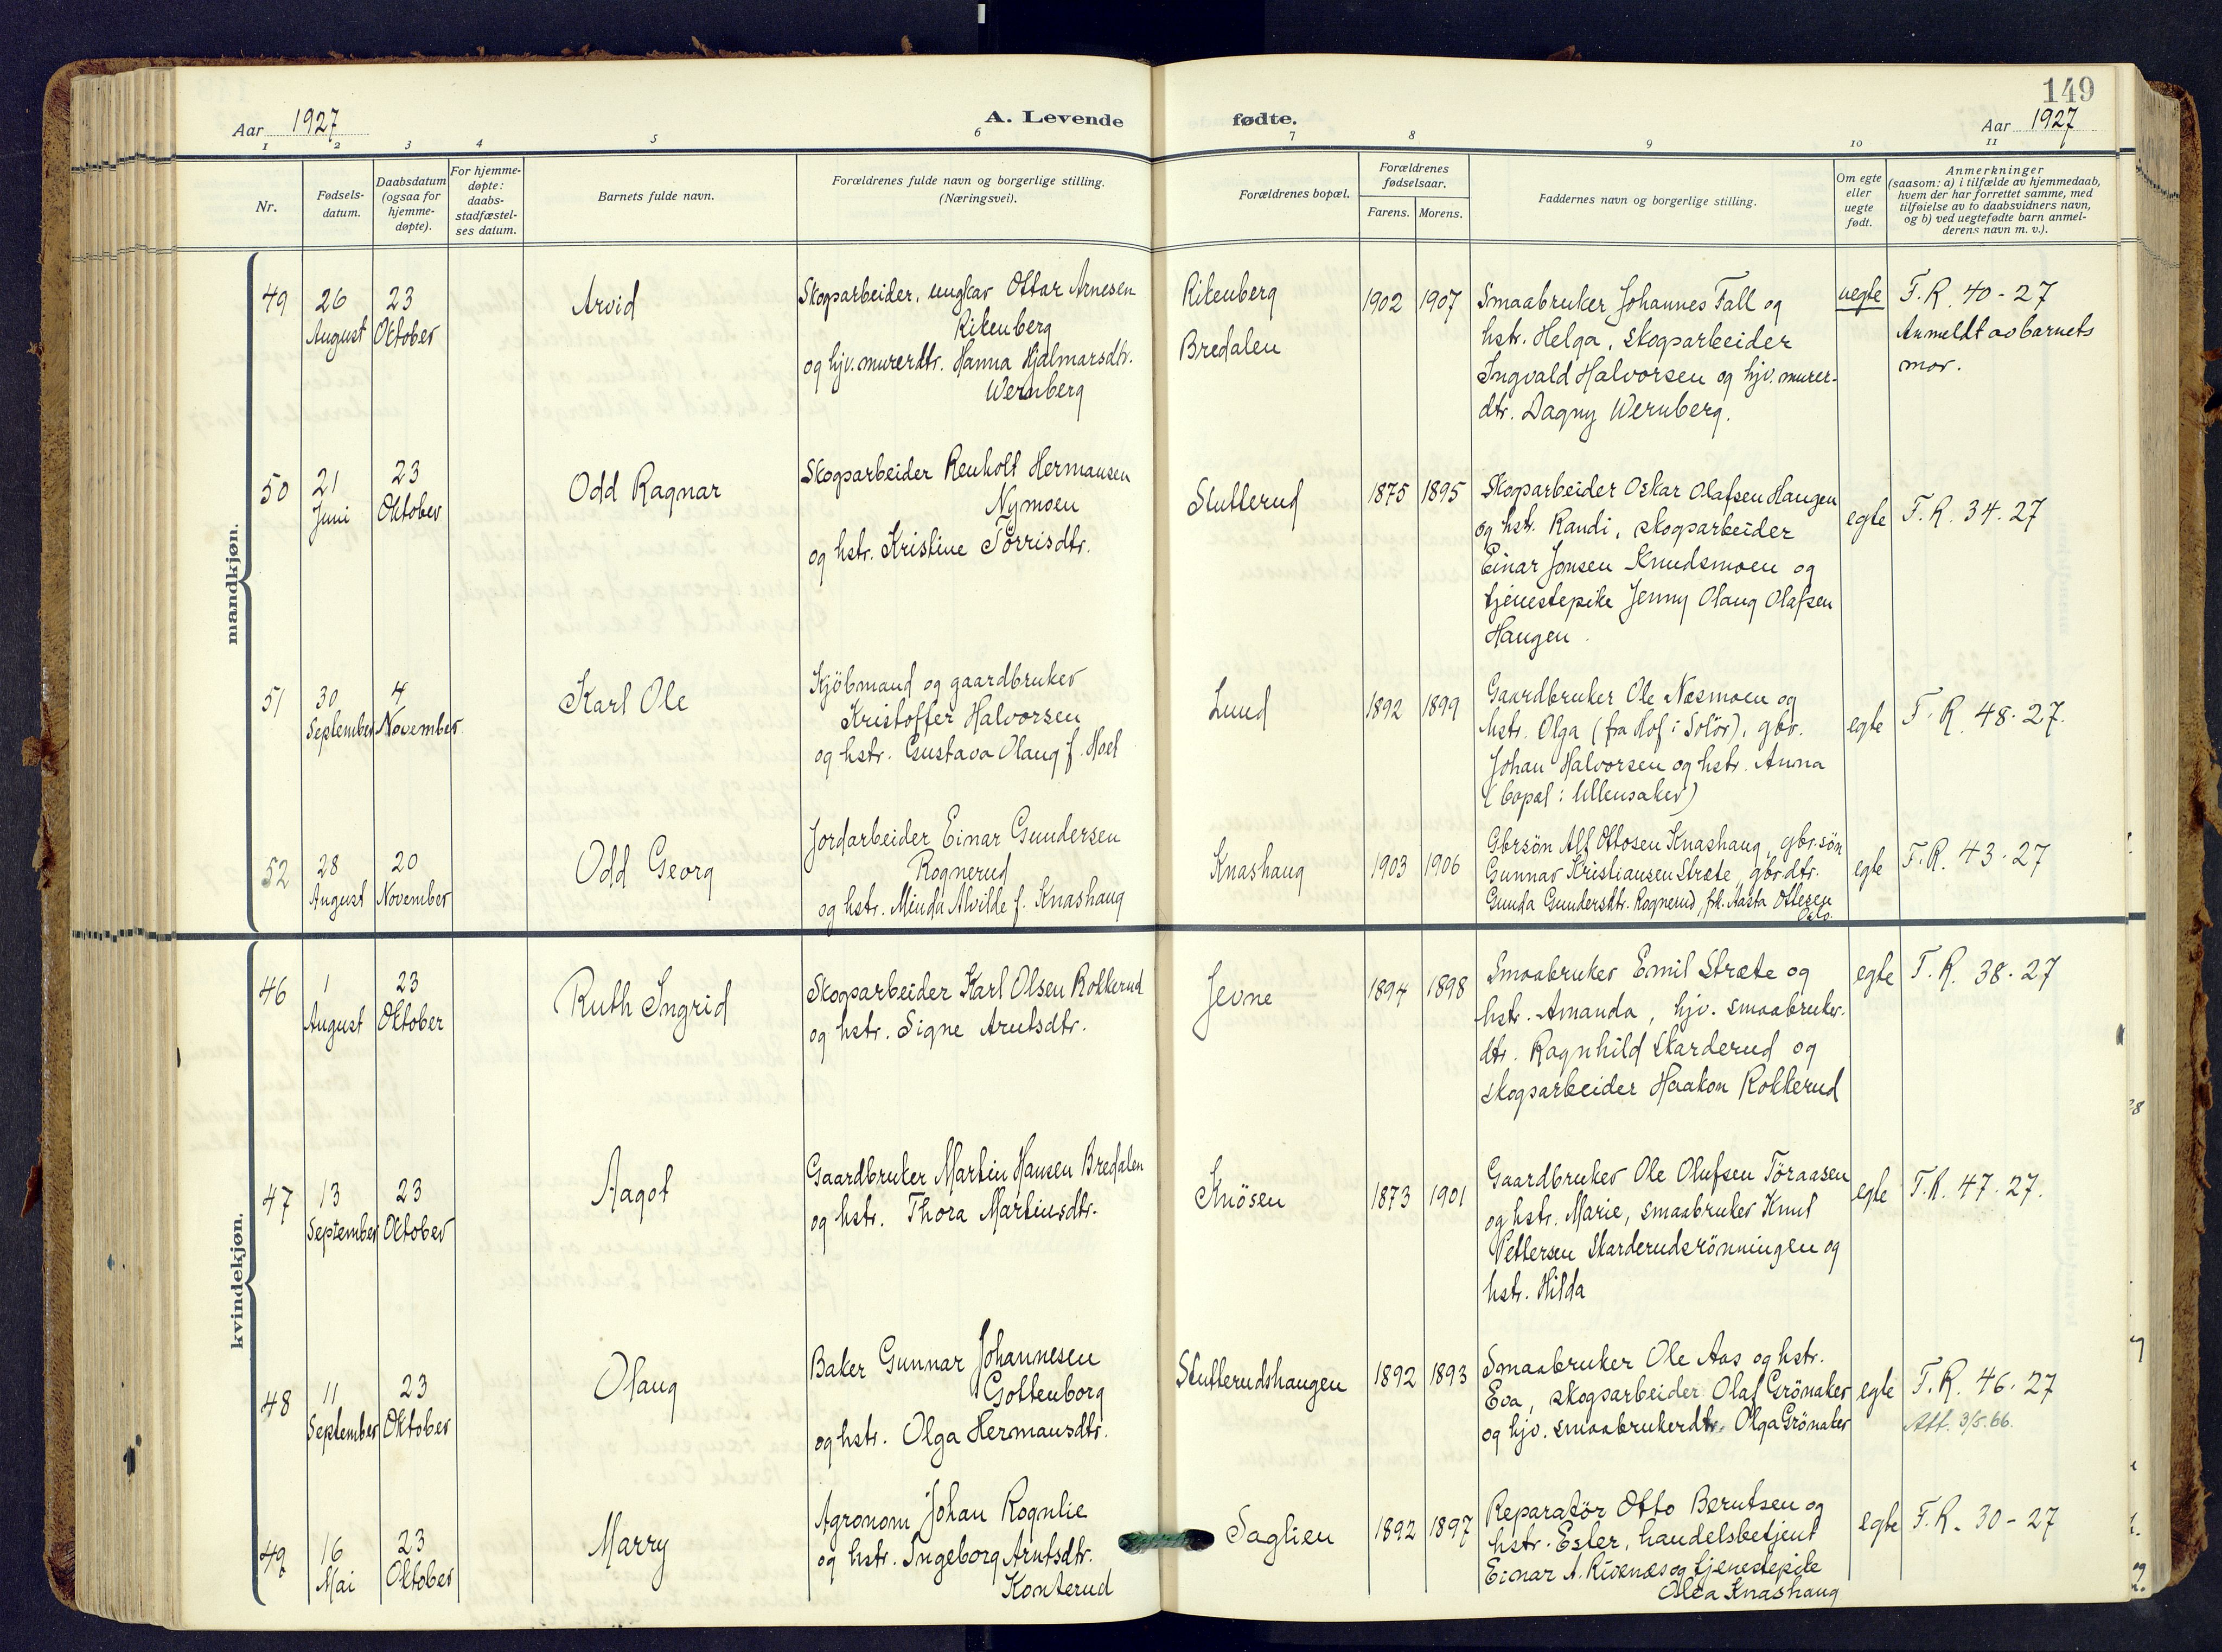 149
Aar 1927
A. Levende fødte.
Aar 1927
1 2 3 4 5 6 7 8 9 10 11
Nr.
Fødsels-
datum.
Daabsdatum
(ogsaa for
hjemme-
døpte).
For hjemme-
døpte:
daabs-
stadfæstel-
ses datum.
Barnets fulde navn.
Forældrenes fulde navn og borgerlige stilling.
(Næringsvei).
Forældrenes bopæl.
Forældrenes
fødselsaar.
Farens. Morens.
Faddernes navn og borgerlige stilling.
Om egte
eller
uegte
født.
Anmerkninger
(saasom: a) i tilfælde av hjemmedaab,
hvem der har forrettet samme, med
tilføielse av to daabsvidners navn,
og b) ved uegtefødte barn anmel-
derens navn m. v.).
mandkjøn.
49
26
August
23
Oktober
Arvid
Skogsarbeider, ungkar Ottar Arnesen
Rikenberg
og hjv. murerdtr. Hanna Hjalmarsdtr.
Wernberg
Rikenberg
Bredalen
1902 1907
Smaabruker Johannes Fall og
hstr. Helga, skogsarbeider
Ingvald Halvorsen og hjv. murer-
dtr. Dagny Wernberg.
uegte
F.R. 40-27
Anmeldt av barnets
mor.
50
21
Juni
23
Oktober
Odd Ragnar
Skogsarbeider Renholt Hermansen
Nymoen
og hstr. Kristine Törrisdtr.
Slutterud
1875 1895
Skogsarbeider Oskar Olafsen Haugen
og hstr. Randi, skogsarbeider
Einar Jonsen Knudsmoen og
tjenestepike Jenny Olaug Olafsen
Haugen.
egte
F.R. 34.27
51
30
September
4
November
Karl Ole
Kjöbmand og gaardbruker
Kristoffer Halvorsen
og hstr. Gustava Olaug f. Hoel
Lund
1892 1899
Gaardbruker Ole Næsmoen og
hstr. Olga (fra Hof i Solör), gbr.
Johan Halvorsen og hstr. Anna
(bopæl: Ullensaker)
egte
F.R. 48.27.
52
28
August
20
November
Odd Georg
Jordarbeider Einar Gundersen
Rognerud
og hstr. Minda Alvilde f. Knashaug
Knashaug
1903 1906
Gbrsön Alf Ottosen Knashaug, gbr.sön
Gunnar Kristiansen Stræte, gbrdtr.
Gunda Gundersdtr. Rognerud, frk. Aasta Ottesen
Oslo.
egte
F.R. 43.27
kvindekjøn.
46
1
August
23
Oktober
Ruth Ingrid
Skogsarbeider Karl Olsen Rokkerud
og hstr. Signe Arntsdtr.
Jevne
1894 1898
Smaabruker Emil Stræte og
hstr. Amanda, hjv. smaabruker-
dtr. Ragnhild Skarderud og
skogsarbeider Haakon Rokkerud
egte
F.R. 38.27
47
13
September
23
Oktober
Aagot
Gaardbruker Martin Hansen Bredalen
og hstr. Thora Martinsdtr.
Knösen
1873 1901
Gaardbruker Ole Olufsen Töraasen
og hstr. Marie, smaabruker Knut
Pettersen Skarderudsrönningen og
hstr. Hilda
egte
F.R. 47.27.
48
11
September
23
Oktober
Olaug
Baker Gunnar Johannesen
Gottenborg
og hstr. Olga Hermansdtr.
Slutterudshaugen
1892 1893
Smaabruker Ole Aas og hstr.
Eva, skogsarbeider Olaf Grönaker
og hjv. smaabrukerdtr. Olga Grönaker
egte
F.R. 46.27
Att. 3/5.66.
49
16
Mai
23
Oktober
Marry
Agronom Johan Rognlie
og hstr. Ingeborg Arntsdtr.
Konterud
Saglien
1892 1897
Reparatör Otto Berntsen og
hstr. Ester, handelsbetjent
Einar A. Rivenæs og tjenestepike
Olea Knashaug
egte
F.R. 30-27